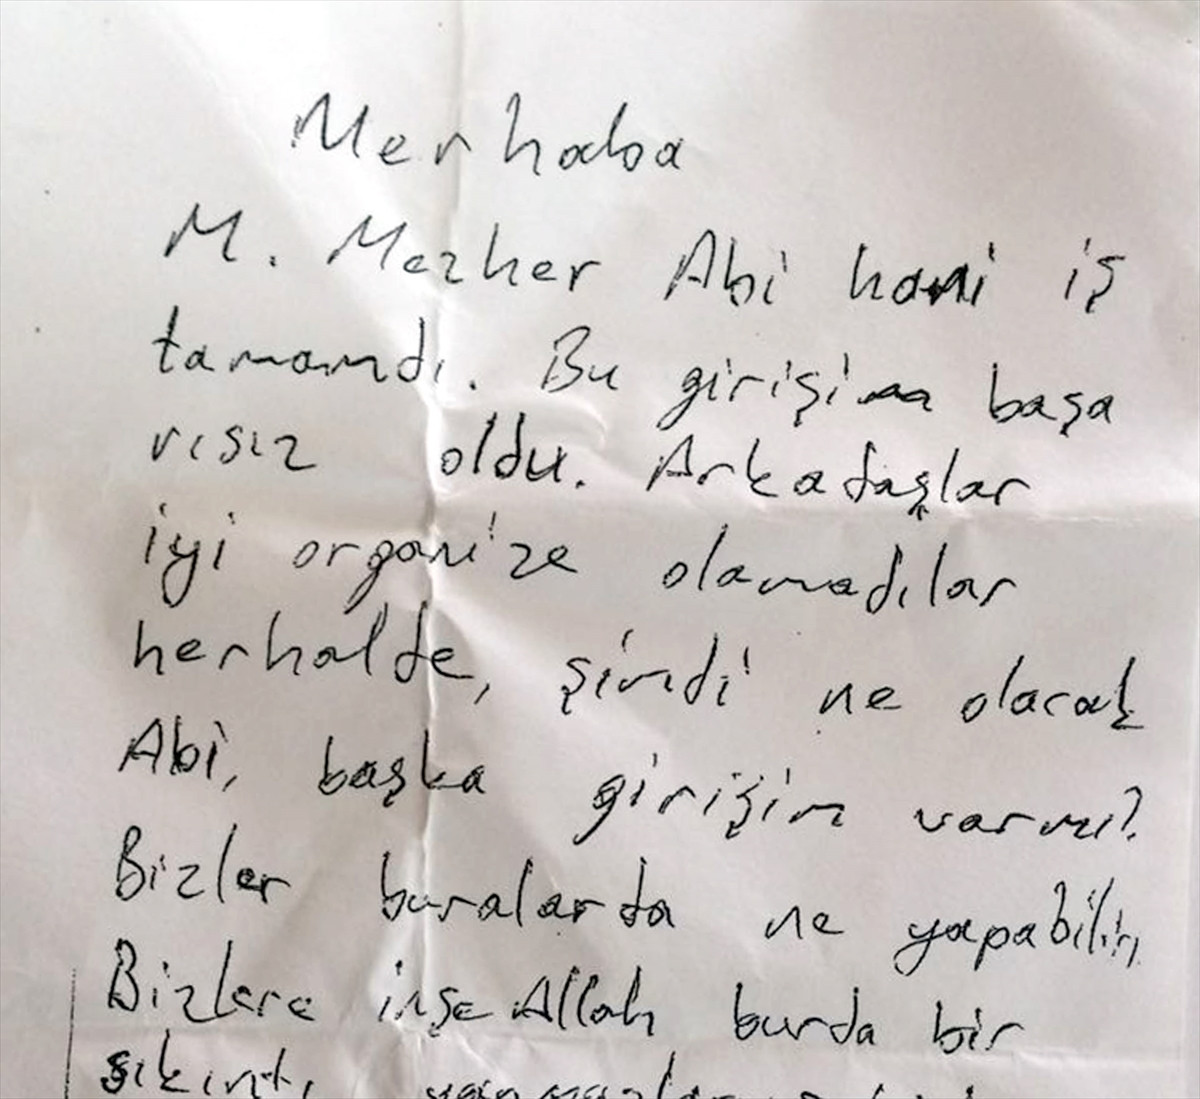 Merhaba
M. Mazher Abi hani iş
tamamdı. Bu girişim başa
rısız oldu. Arkadaşlar
iyi organize olamadılar
herhalde, şimdi ne olacak
Abi, başka girişim varmı?
Bizler buralarda ne yapabilir
Bizlere inşe Allah burda bir
sıkıntı